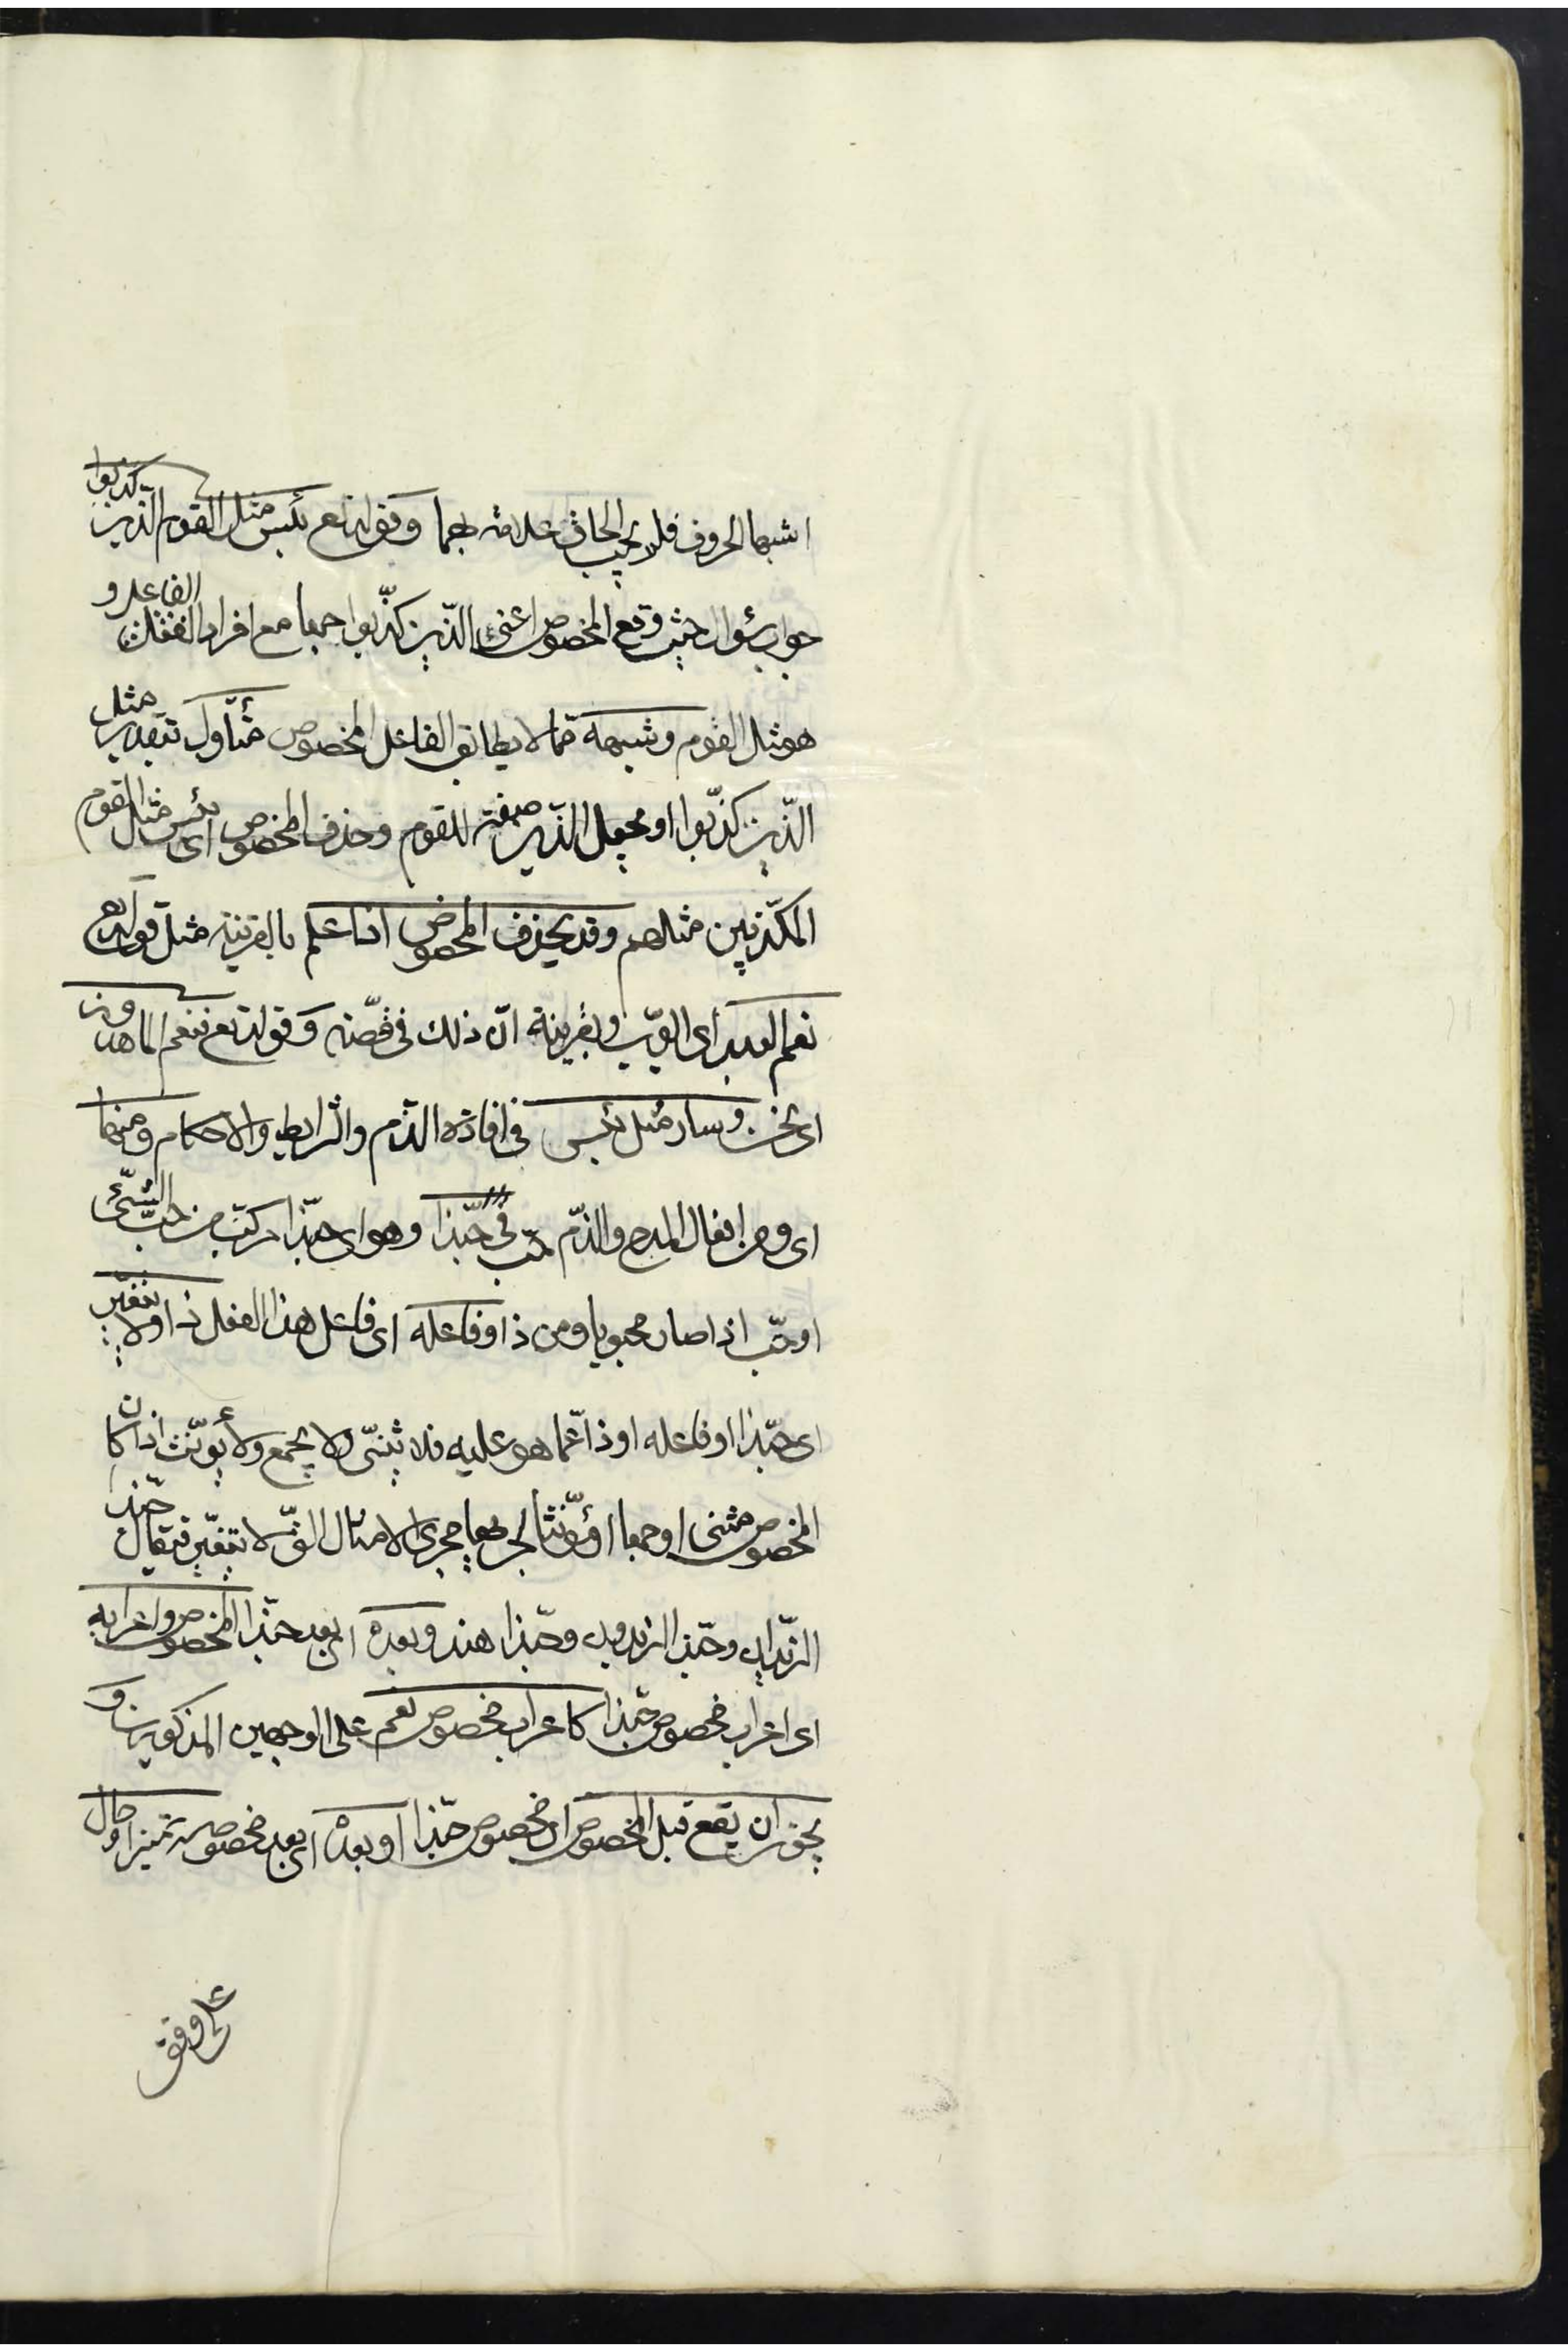 اشبها الحروف فلا يجب الحاق علامة بهما وقوله تع بئس مثل القوم الذين كذبوا
جواب سؤال حيث وقع المخصوص اعني الذين كذّبوا جمعا مع افراد الفاعل و
هو مثل القوم وشبهه ممّا لا يطابق الفاعل المخصوص متأوّل بتقدير مثل
الذين كذّبوا او بجعل الذين صفة للقوم وحذف المخصوص اى بئس مثل القوم
المكذّبين مثلهم وقد يحذف المخصوص اذا علم بالقرينة مثل قوله تع
نعم العبد اى ايّوب بقرينة انّ ذلك في قصّته وقوله تع فنعم الماهدون
اى نحن وساء مثل بئس في افادة الذم والشرايط والاحكام ومنها
اى ومن افعال المدح والذّم حبّ في حبّذا وهو اى حبّذا مركّب من حبّ الشئ
او حبّ اذا صار محبوبا ومن ذا وفاعله اى فاعل هذا الفعل ذا ولا يتغيّر
اى حبّذا او فاعله او ذا عمّا هو عليه فلا يثنّى ولا يجمع ولا يؤنّث اذا كان
المخصوص مثنى او جمعا او مؤنّثا لجريها مجرى الامثال التى لا يتغيّر فيقال حبّذا
الزيدان وحبّذا الزيدون وحبّذا هند وبعده اى بعد حبّذا المخصوص واعرابه
اى اعراب مخصوص حبّذا كاعراب مخصوص نعم على الوجهين المذكورين و
يجوز ان يقع قبل المخصوص اى مخصوص حبّذا او بعده اى بعد مخصوصه تميز او حال
على وفق